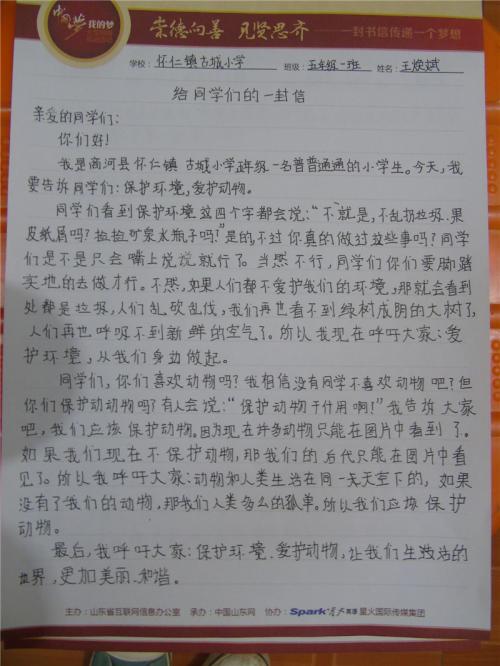 中国梦 我的梦
崇德向善 见贤思齐 ——一封书信传递一个梦想
学校:怀仁镇古城小学 班级:五年级一班 姓名:王焕斌
给同学们的一封信
亲爱的同学们:
你们好!
我是商河县怀仁镇 古城小学五年级一名普普通通的小学生。今天,我
要告诉同学们:保护环境,爱护动物。
同学们看到保护环境这四个字都会说:“不就是,不乱扔垃圾、果
皮纸屑吗?捡捡矿泉水瓶子吗?”是的,不过你真的做过这些事吗?同学
们是不是只会嘴上说说就行了。当然不行,同学们你们要脚踏
实地的去做才行。不然,如果人们都不爱护我们的环境,那就会看到
处都是垃圾,人们乱砍乱伐,我们再也看不到绿树成阴的大树了,
人们再也呼吸不到新鲜的空气了。所以我现在呼吁大家:爱
护环境,从我们身边做起。
同学们,你们喜欢动物吗?我相信没有同学不喜欢动物吧?但
你们保护动动物吗?有人会说:“保护动物干什用啊!”我告诉大家
吧,我们应该保护动物。因为现在许多动物只能在图片中看到了。
如果我们现在不保护动物,那我们的后代只能在图片中看
见了。所以我呼吁大家:动物和人类生活在同一天空下的,如果
没有了我们的动物,那我们人类多么的孤单。所以我们应该保护
动物。
最后,我呼吁大家:保护环境、爱护动物,让我们生活活的
世界,更加美丽、和谐。
主办:山东省互联网信息办公室 承办:中国山东网 协办:Spark 星火英语 星火国际传媒集团